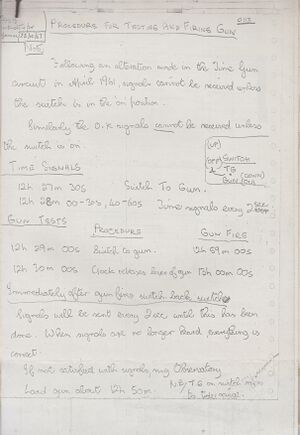 PROCEDURE FOR TESTING AND FIRING GUN
Note
Following an alteration made in the Time Gun
circuit in April 1961, signals cannot be received unless
the switch is in the on position.
Similarly the O.K signals cannot be received unless
the switch is on.
(UP)
(OFF) SWITCH
& TG (DOWN)
GUN (ON)
TIME SIGNALS
12h 27m 30s Switch To Gun.
12h 28m 00-30s, 40-60s Time signals every 2 sec
GUN TESTS
PROCEDURE GUN FIRE
12h 29m 00s Switch to gun. 12h 59m 00s
12h 30m 00s Clock releases lever of gun 13h 00m 00s
Immediately after gun fires switch back switch
Signals will be sent every 2 sec until this has been
done. When signals are no longer heard everything is
correct.
If not satisfied with signals, ring Observatory
Load gun about 12h 50m.
N.B. TG on switch refers
to time signal.